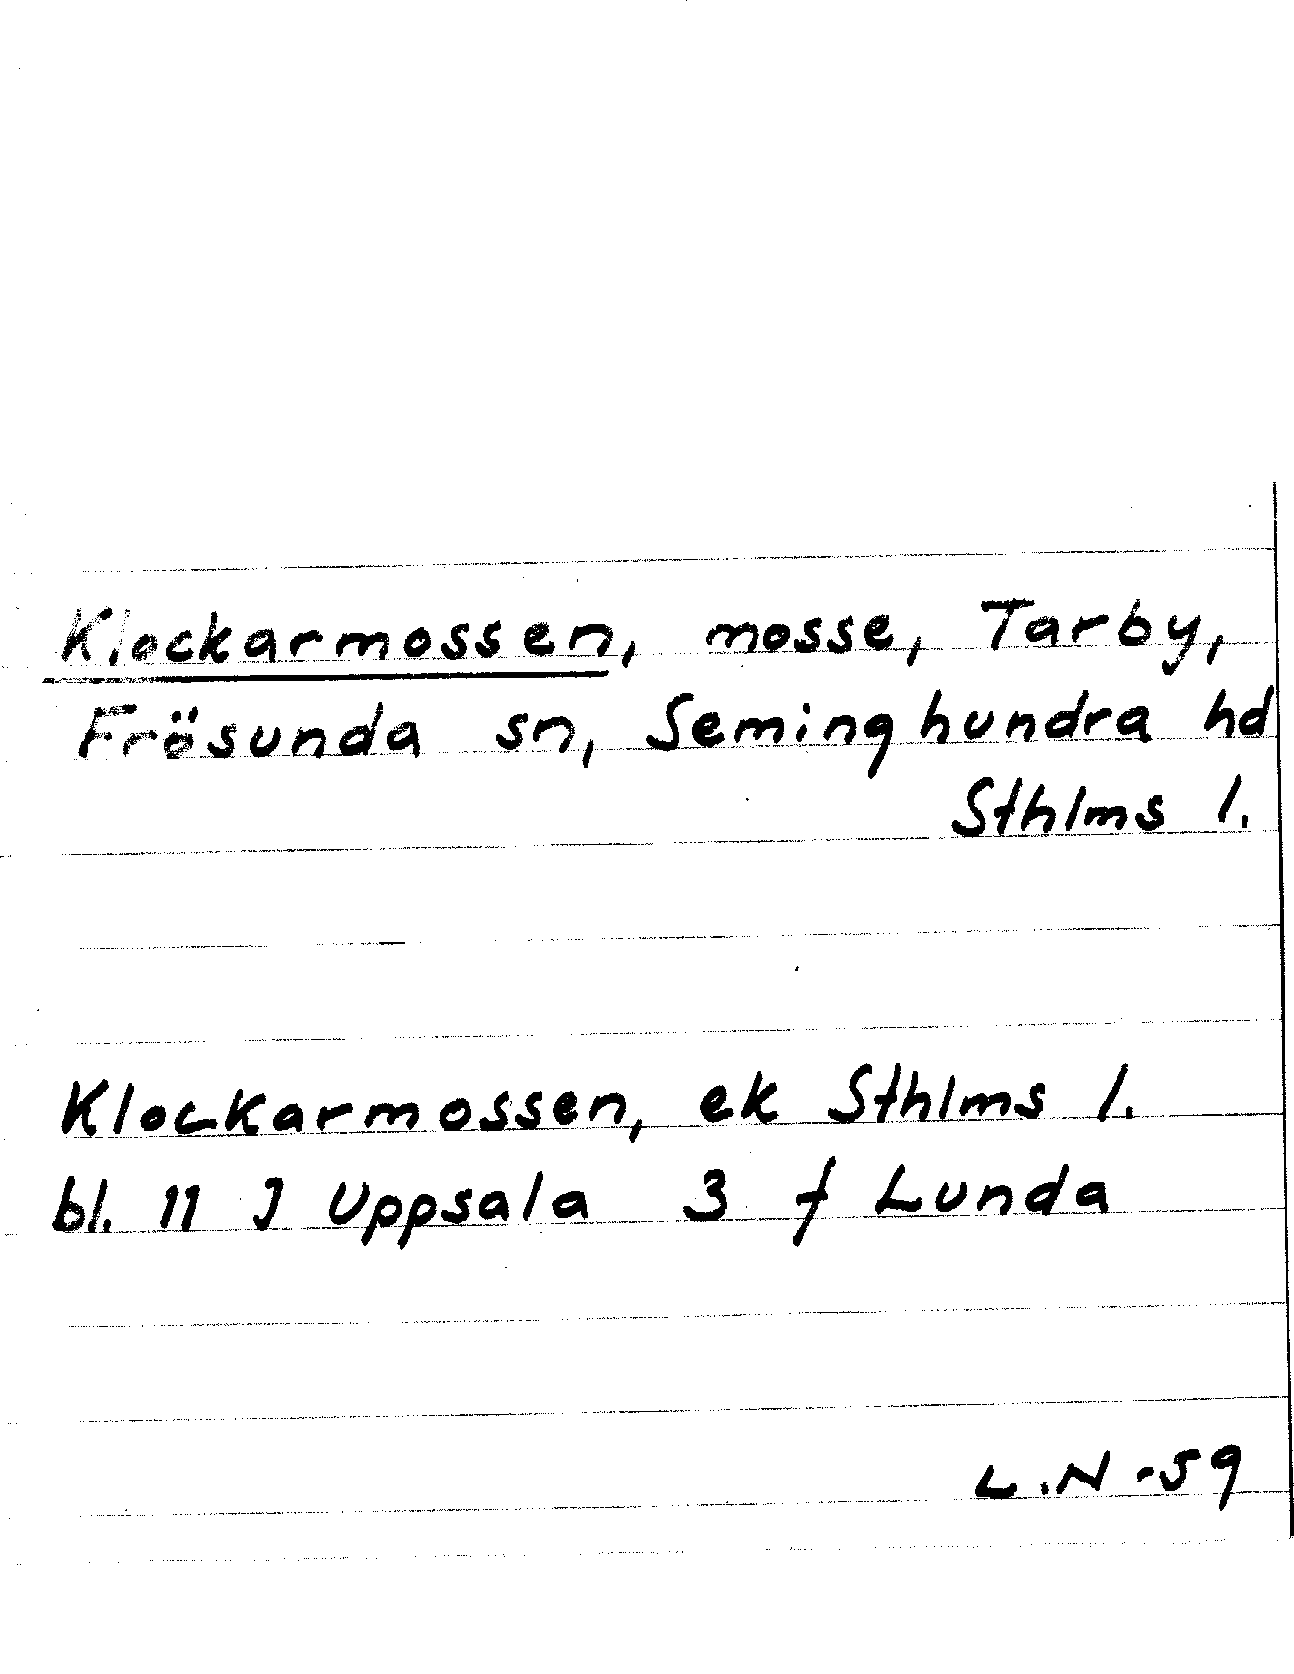 Klockarmossen, mosse, Tarby,
Frösunda sn, Seminghundra hd
Sthlms l.
Klockarmossen, ek Sthlms l.
bl. 11 J Uppsala 3 f Lunda
L.N -59